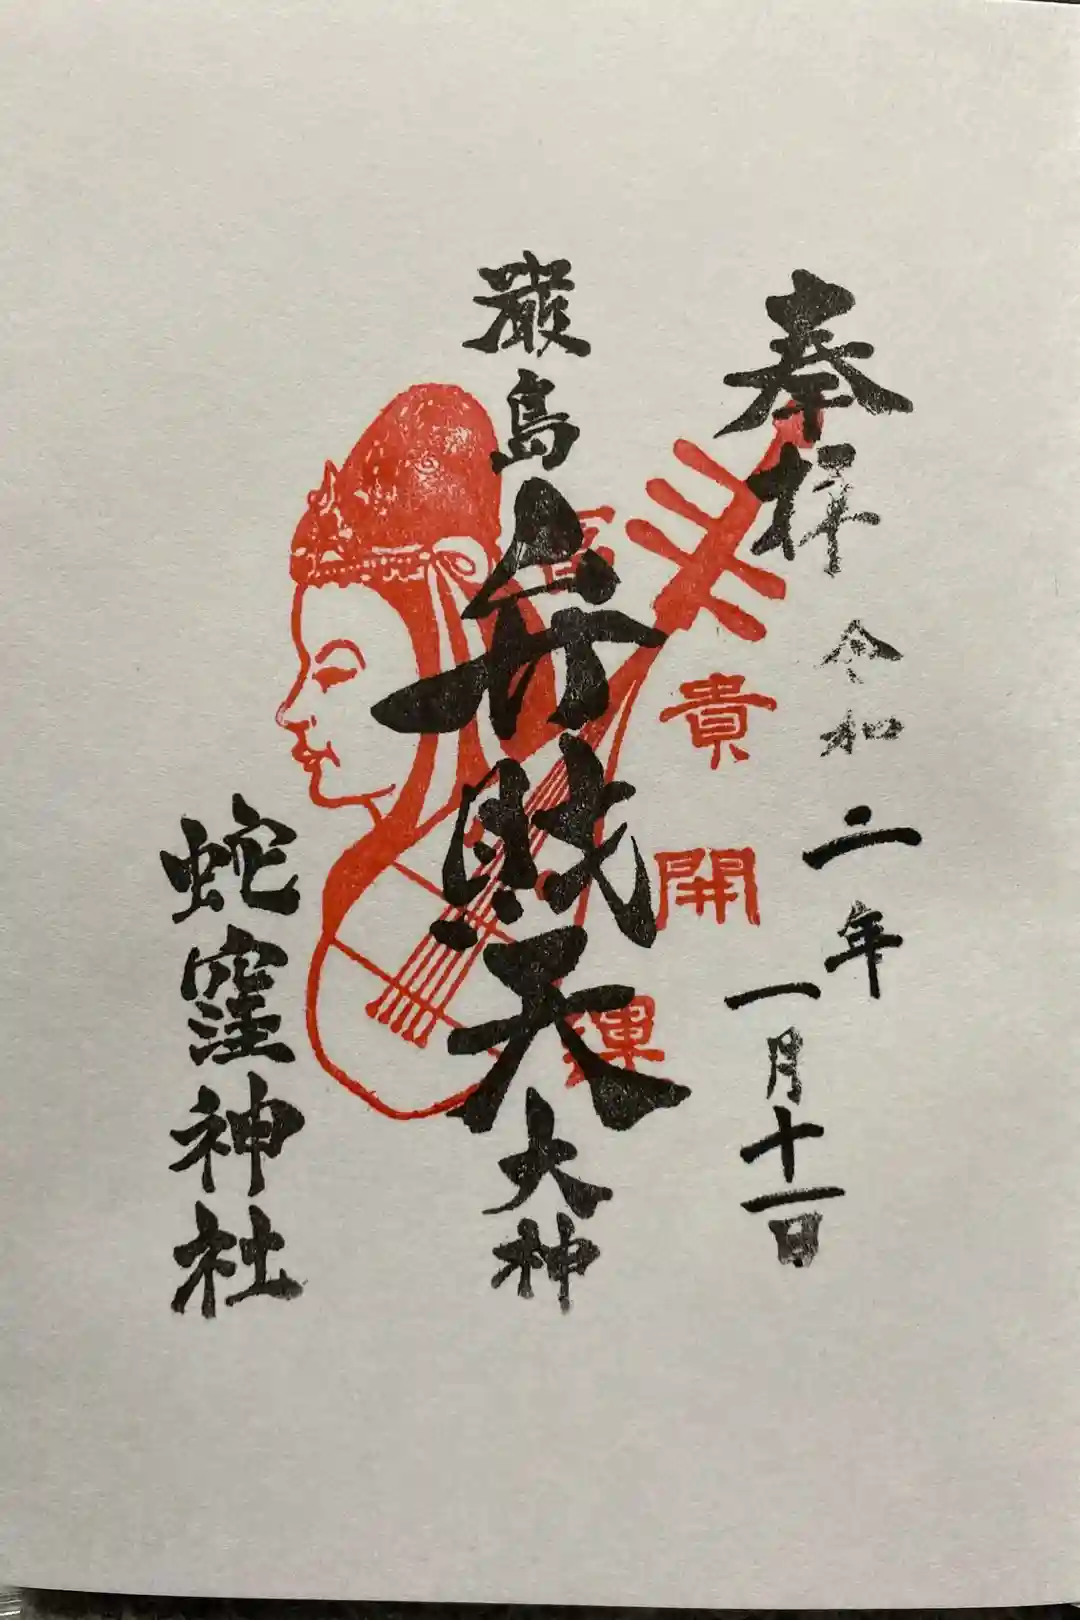 奉拝
令和二年
一月十一日
厳島弁財天大神
富貴開運
蛇窪神社